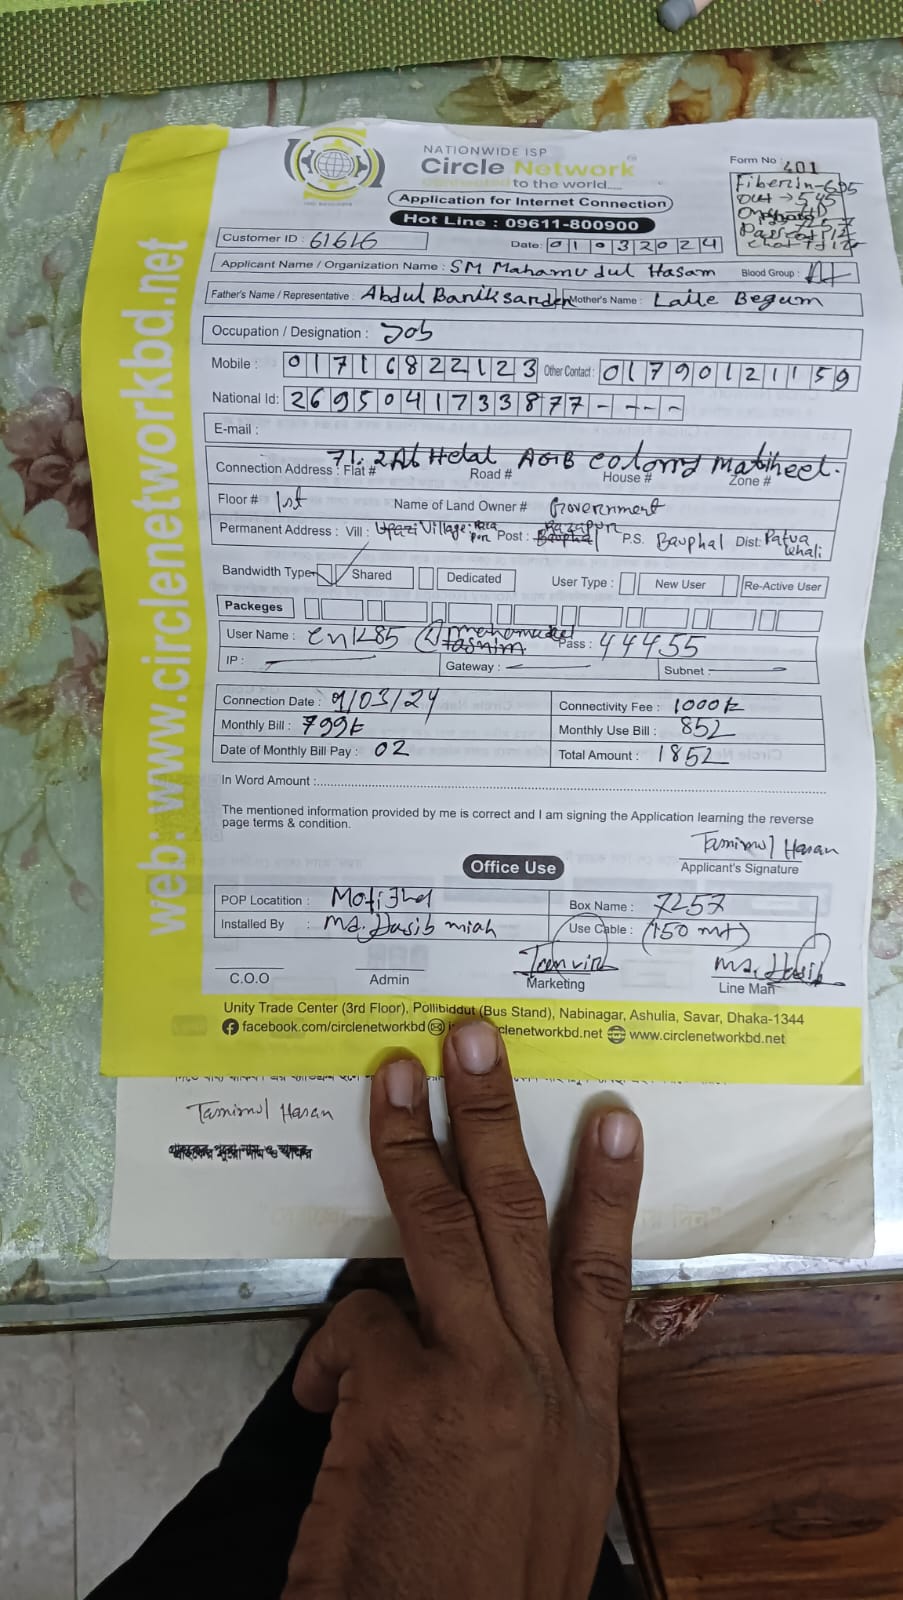 NATIONWIDE ISP
Circle Network
connected to the world.....
Application for Internet Connection
Hot Line : 09611-800900
Form No : 401
Fiber in-605
out → 545
Customer ID : 61616
Date: 01032024
Applicant Name / Organization Name : SM Mahamudul Hasam Blood Group : A+
Father's Name / Representative : Abdul Barik sarder Mother's Name : Laile Begum
Occupation / Designation : Job
Mobile : 01716822123 Other Contact : 01790121159
National Id: 2695041733877----
E-mail :
71. 2Ab Helal AGB colony Matijheel.
Connection Address : Flat # Road # House # Zone #
Floor # 1st Name of Land Owner # Government
Permanent Address : Vill : Village: Post : Bauphal P.S. Bauphal Dist: Patua khali
Bandwidth Type Shared Dedicated User Type : New User Re-Active User
Packeges
User Name : cn1285 tasnim Pass : 44455
IP : Gateway : Subnet
Connection Date : 9/03/24 Connectivity Fee : 1000tk
Monthly Bill : 799tk Monthly Use Bill : 852
Date of Monthly Bill Pay : 02 Total Amount : 1852
In Word Amount :
The mentioned information provided by me is correct and I am signing the Application learning the reverse
page terms & condition.
Tamimul Hasan
Applicant's Signature
Office Use
POP Locatition : Motijhel Box Name : 7257
Installed By : Md. Hasib miah Use Cable : (150 mt)
Tanvir Md. Hasib
C.O.O Admin Marketing Line Man
Unity Trade Center (3rd Floor), Pollibiddut (Bus Stand), Nabinagar, Ashulia, Savar, Dhaka-1344
facebook.com/circlenetworkbd clenetworkbd.net www.circlenetworkbd.net
web: www.circlenetworkbd.net
Tamimul Hasan